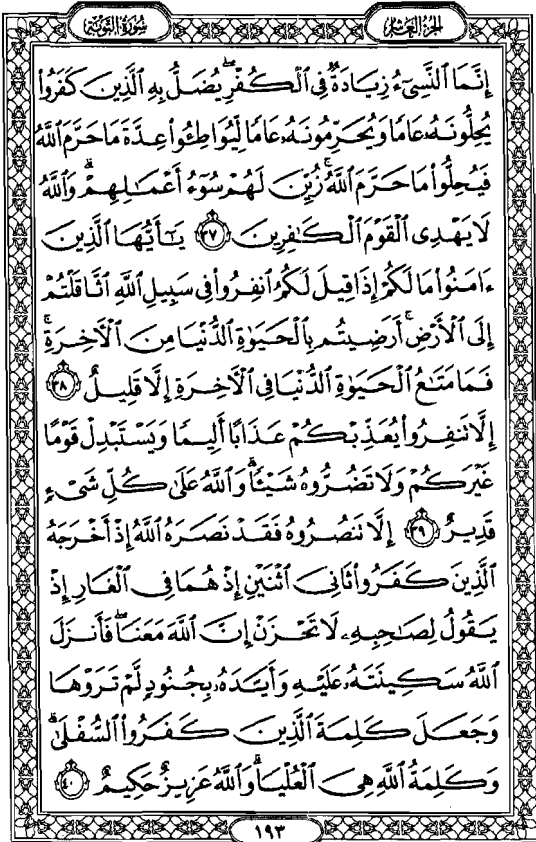 سُورَةُ التَّوْبَةِ
الجُزْءُ العَاشِرُ
إِنَّمَا ٱلنَّسِىٓءُ زِيَادَةٌ فِى ٱلْكُفْرِۖ يُضَلُّ بِهِ ٱلَّذِينَ كَفَرُوا۟
يُحِلُّونَهُۥ عَامًا وَيُحَرِّمُونَهُۥ عَامًا لِّيُوَاطِـُٔوا۟ عِدَّةَ مَا حَرَّمَ ٱللَّهُ
فَيُحِلُّوا۟ مَا حَرَّمَ ٱللَّهُۚ زُيِّنَ لَهُمْ سُوٓءُ أَعْمَـٰلِهِمْۗ وَٱللَّهُ
لَا يَهْدِى ٱلْقَوْمَ ٱلْكَـٰفِرِينَ ٣٧ يَـٰٓأَيُّهَا ٱلَّذِينَ
ءَامَنُوا۟ مَا لَكُمْ إِذَا قِيلَ لَكُمُ ٱنفِرُوا۟ فِى سَبِيلِ ٱللَّهِ ٱثَّاقَلْتُمْ
إِلَى ٱلْأَرْضِۚ أَرَضِيتُم بِٱلْحَيَوٰةِ ٱلدُّنْيَا مِنَ ٱلْـَٔاخِرَةِۚ
فَمَا مَتَـٰعُ ٱلْحَيَوٰةِ ٱلدُّنْيَا فِى ٱلْـَٔاخِرَةِ إِلَّا قَلِيلٌ ٣٨
إِلَّا تَنفِرُوا۟ يُعَذِّبْكُمْ عَذَابًا أَلِيمًا وَيَسْتَبْدِلْ قَوْمًا
غَيْرَكُمْ وَلَا تَضُرُّوهُ شَيْـًٔاۗ وَٱللَّهُ عَلَىٰ كُلِّ شَىْءٍ
قَدِيرٌ ٣٩ إِلَّا تَنصُرُوهُ فَقَدْ نَصَرَهُ ٱللَّهُ إِذْ أَخْرَجَهُ
ٱلَّذِينَ كَفَرُوا۟ ثَانِىَ ٱثْنَيْنِ إِذْ هُمَا فِى ٱلْغَارِ إِذْ
يَقُولُ لِصَـٰحِبِهِۦ لَا تَحْزَنْ إِنَّ ٱللَّهَ مَعَنَاۖ فَأَنزَلَ
ٱللَّهُ سَكِينَتَهُۥ عَلَيْهِ وَأَيَّدَهُۥ بِجُنُودٍ لَّمْ تَرَوْهَا
وَجَعَلَ كَلِمَةَ ٱلَّذِينَ كَفَرُوا۟ ٱلسُّفْلَىٰۗ
وَكَلِمَةُ ٱللَّهِ هِىَ ٱلْعُلْيَاۗ وَٱللَّهُ عَزِيزٌ حَكِيمٌ ٤٠
١٩٣